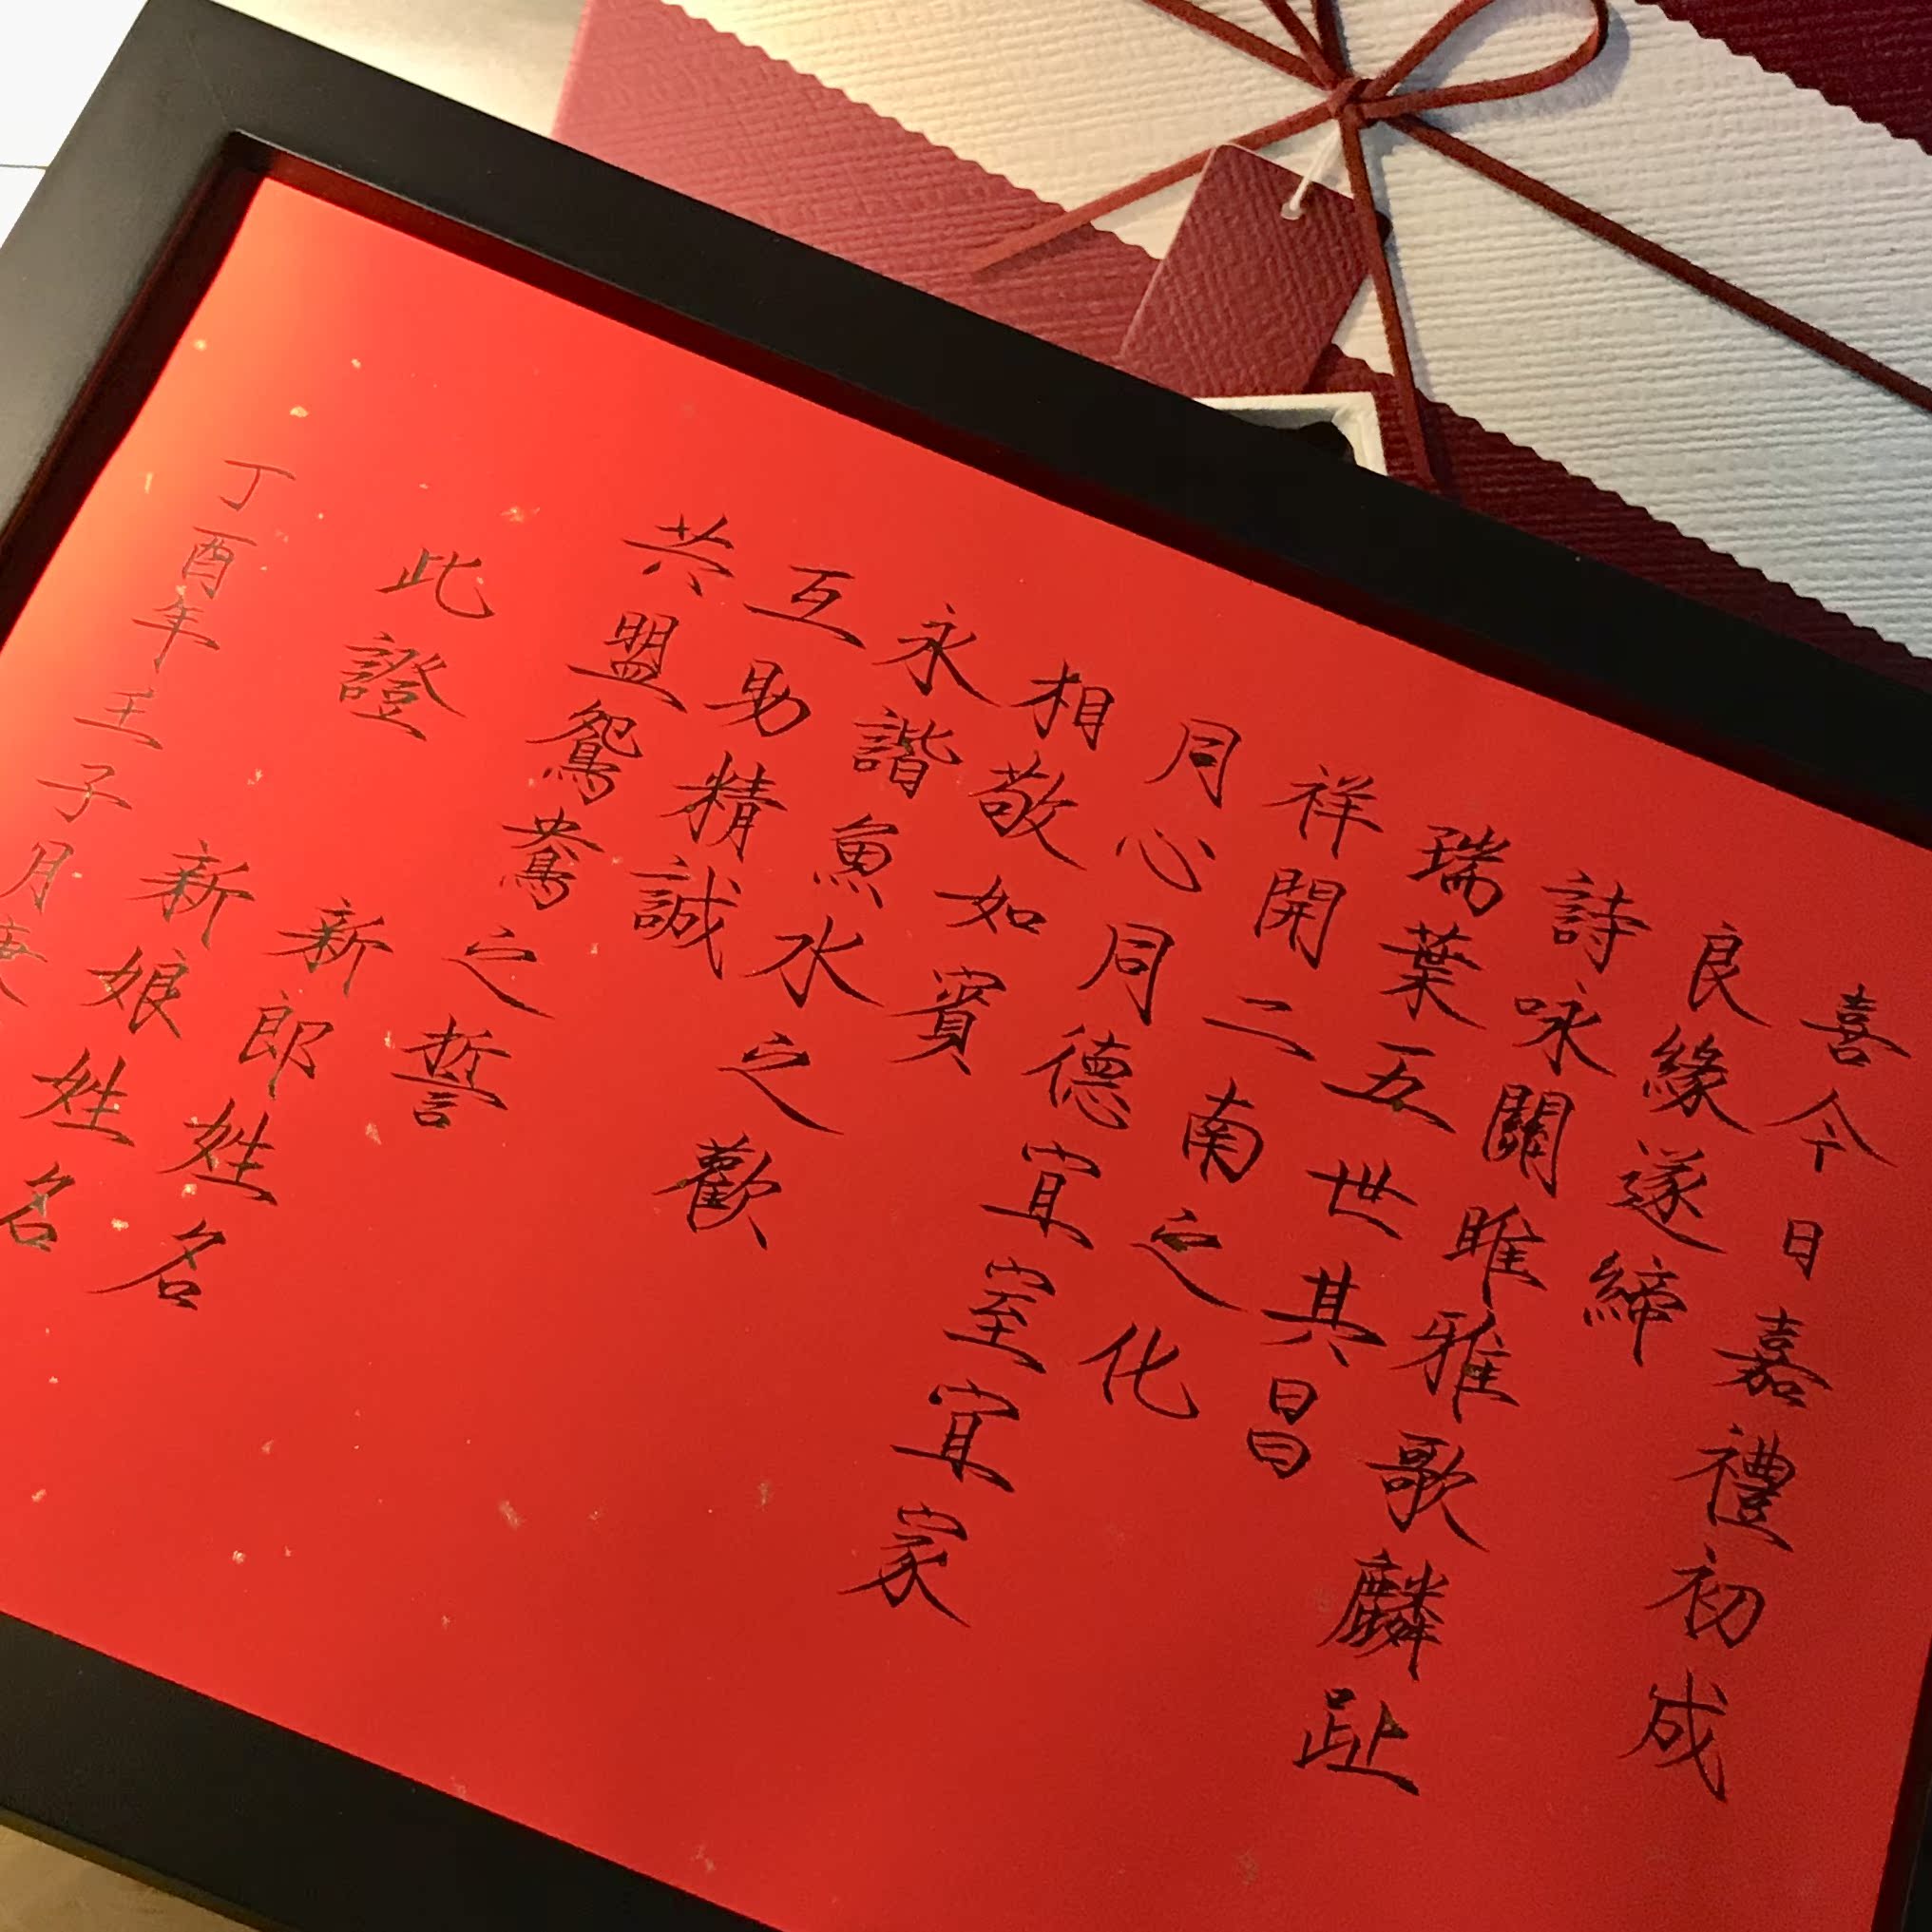 喜今日嘉禮初成
良緣遂締
詩咏關雎雅歌麟趾
瑞葉五世其昌
祥開二南之化
同心同德宜室宜家
相敬如賓
永諧魚水之歡
互助精誠
共盟鴛鴦之誓
此證
新郎姓名
新娘姓名
丁酉年壬子月